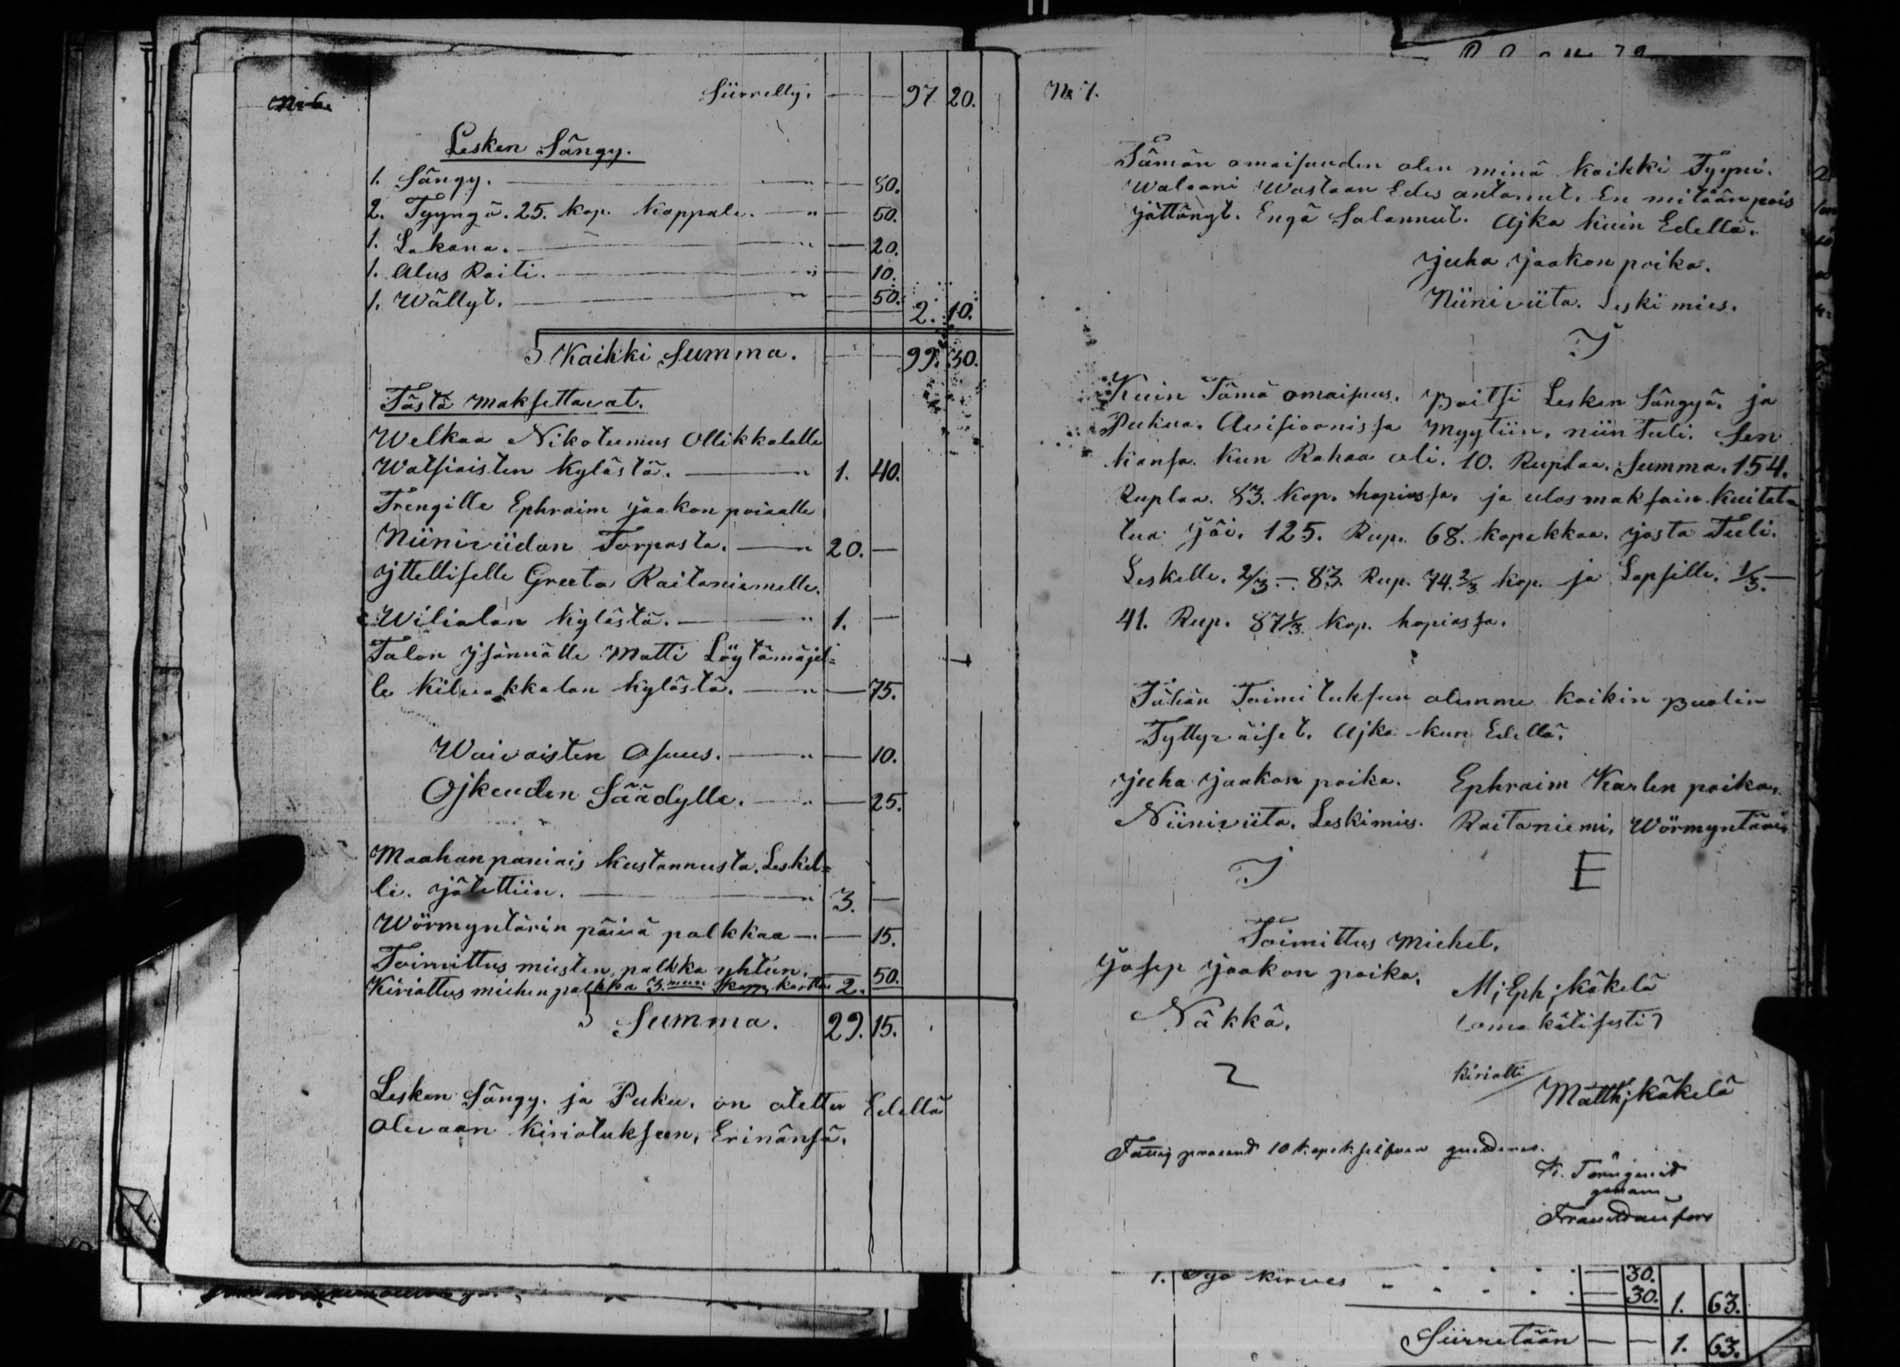 Siirretty. — — 97 20.
Lesken Sängy.
1. Sängy. — „ — 80.
2. Tyyngä. 25. kop. kappale. — „ — 50.
1. Lakana. — „ — 20.
1. Alus Raiti. — „ — 10.
1. Wällyt. — „ — 50. 2. 10.
Kaikki Summa. — — 99. 30.
Tästä maksettavat.
Welkaa Nikotemus Ollikkalalle
Watsiaisten kylästä. — „ 1. 40.
Trengille Ephraim Jaakon poiaalle
Niiniviidan Torpasta. — „ 20. —
Yttelliselle Greeta Raitaniemelle.
Wilialan kylästä. — „ 1. —
Talon Jsännälle Matti Löytämäjel=
le Kilwakkalan kylästä. — „ — 75.
Waivaisten Osuus. — „ — 10.
Ojkeuden Säädylle. — „ — 25.
Maahanpaniais kustannusta. Leskel=
le. jätettiin. — „ 3. —
Wörmyntärin päivä palkkaa — „ — 15.
Toimittus miesten palkka yhteen.
Kirioittus miehen palkka 2. 50.
Summa. 29. 15.
Lesken Sängy. ja Puku. on otettu Edellä
olevaan kirioitukseen, Erinänsä.
No 7.
Tämän omaisuuden olen minä kaikki Tyyni.
Walaani Wastaan Edes antanut. En mitään pois
jättänyt. Engä Salannut. Ajka kuin Edellä.
Juha Jaakon poika.
Niiniviita. Leski mies.
Kuin Tämä omaisuus. paitsi Lesken Sängyä. ja
Pukua. Auisioonissa myytiin, niin Tuli. sen
kansa. kun Rahaa oli. 10. Ruplaa. Summa. 154.
Ruplaa. 83. kop. hopiassa. ja ulos maksain kuitata
tua jäi. 125. Rup. 68. kopekkaa. josta Tuli.
Leskelle. 2/3 — 83. Rup. 74. 2/3 kop. ja Lapsille. 1/3. —
41. Rup. 87 1/3 kop. hopiassa.
Tähän Toimituksen olemme kaikin puolin
Tyttyväiset. Ajka kun Edellä.
Juha Jaakon poika. Ephraim Karlen poika.
Niiniviita. Leskimies. Raitaniemi, Wörmyntäri
E
Toimittus Miehet.
Josep Jaakon poika. M; Eph; Käkelä
Näkkä. (oma kätisesti)
kirioitti Matth; Käkelä
10 kopek
1. kirves — 30.
— 30. 1. 63.
Siirretään — — 1. 63.